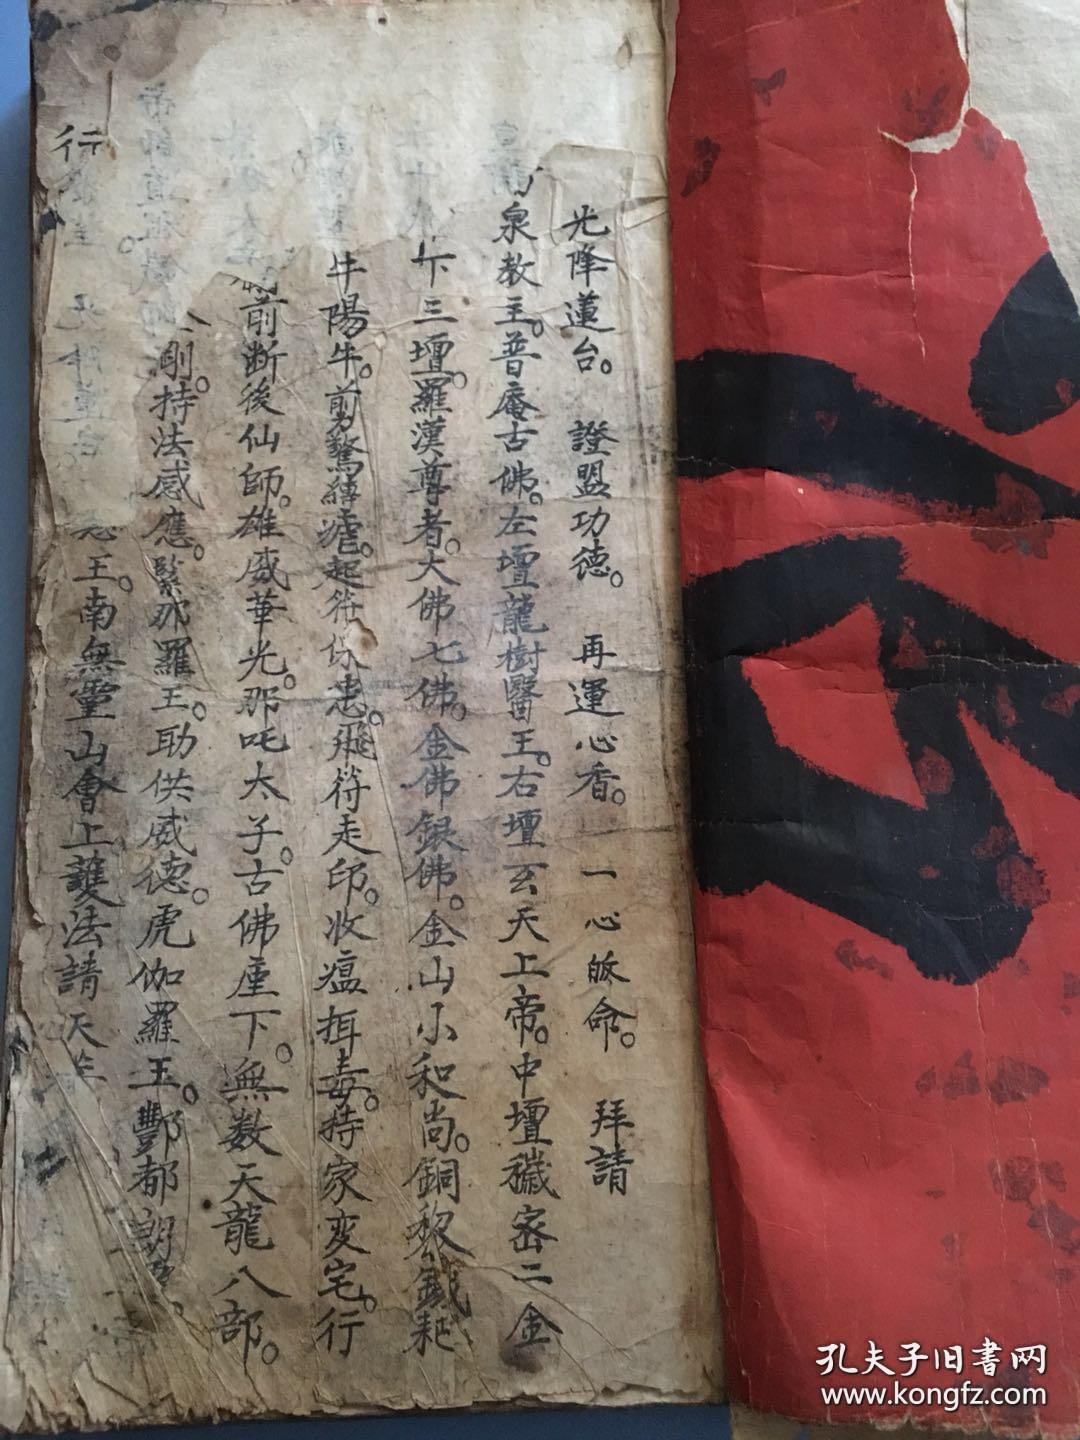 光降蓮台。 證盟功德。 再運心香。 一心皈命。 拜請
泉教主。普庵古佛。左壇龍樹醫王。右壇玄天上帝。中壇穢密二金
下三壇。羅漢尊者。大佛七佛。金佛銀佛。金山小和尚。銅犂鐵耙
牛陽牛。剪驚縛瘧。起符保患。飛符走印。收瘟揖毒。持家变宅。行
前断後仙師。雄威華光。那吒太子。古佛座下。無数天龍八部。
剛。持法感應。緊那羅王。助供威德。虎伽羅王。酆都朗
行 王。南無靈山會上護法請天
孔夫子旧書网
www.kongfz.com